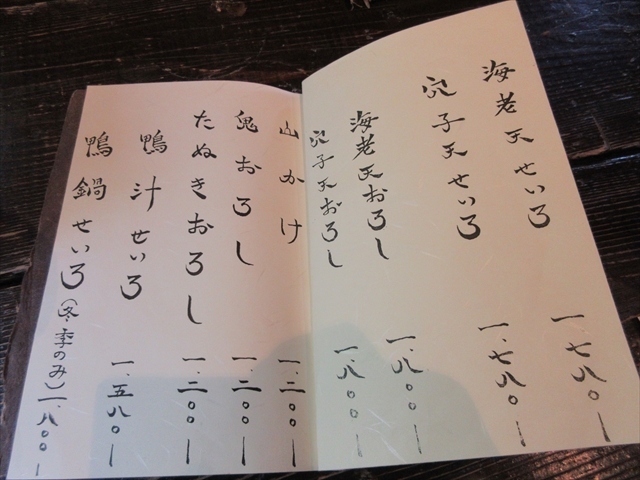 海老天せいろ 一七八〇ー
穴子天せいろ 一、七八〇ー
海老天おろし 一、八〇〇ー
穴子天おろし 一、八〇〇ー
山かけ 一、二〇〇ー
鬼おろし 一、二〇〇ー
たぬきおろし 一、二〇〇ー
鴨汁せいろ 一、五八〇ー
鴨鍋せいろ(冬季のみ)一、八〇〇ー